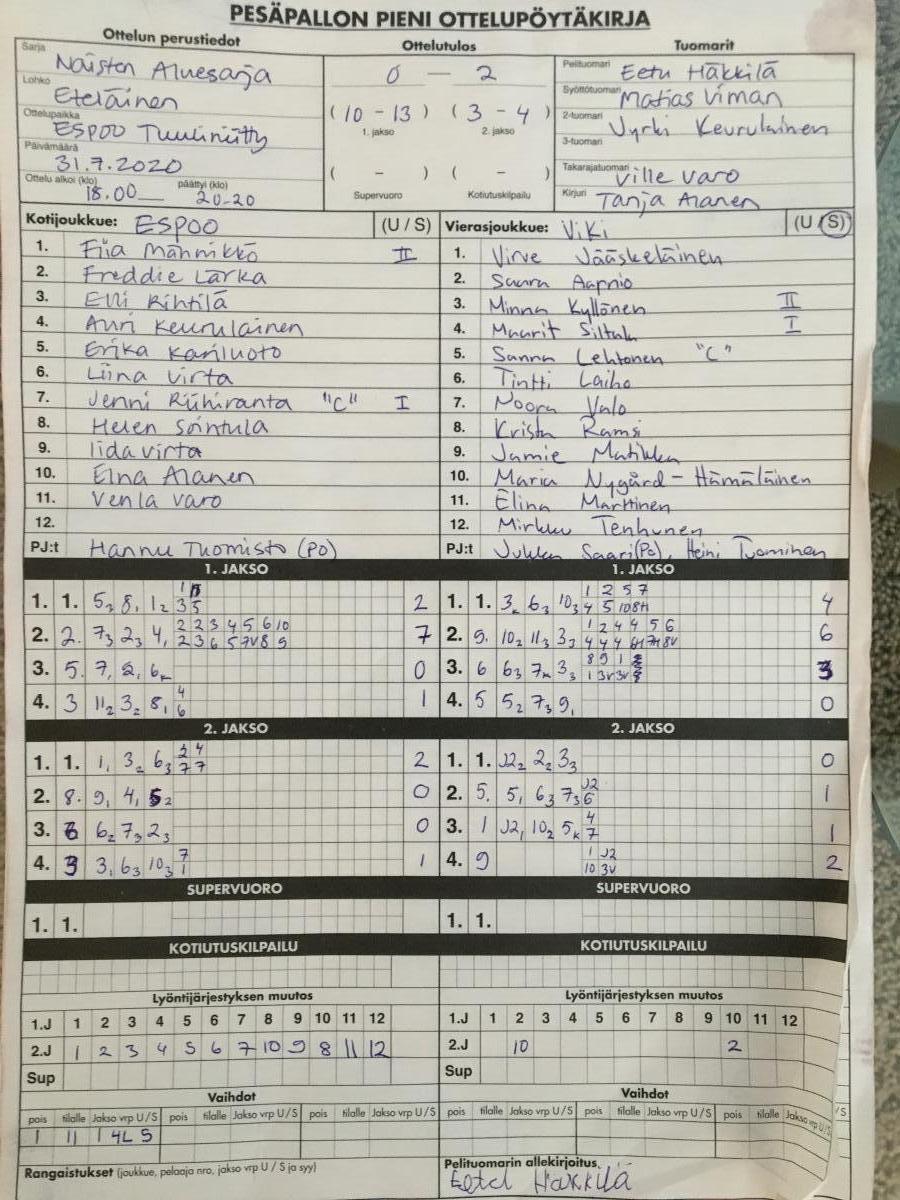 PESÄPALLON PIENI OTTELUPÖYTÄKIRJA
Ottelun perustiedot
Sarja
Naisten Aluesarja
Lohko
Eteläinen
Ottelupaikka
ESPOO Tuuliniitty
Päivämäärä
31.7.2020
Ottelu alkoi (klo) päättyi (klo)
18.00 20.20
Ottelutulos
0 — 2
(10 - 13) (3 - 4)
1. jakso 2. jakso
( - ) ( - )
Supervuoro Kotiutuskilpailu
Tuomarit
Pelituomari Eetu Häkkilä
Syöttötuomari Matias Viman
2-tuomari Jyrki Keurulainen
3-tuomari
Takarajatuomari Ville Varo
Kirjuri Tanja Alanen
Kotijoukkue: ESPOO (U / S)
1. Fiia Männikkö II
2. Freddie Lärka
3. Elli Rihtilä
4. Auri Keurulainen
5. Erika Kariluoto
6. Liina Virta
7. Jenni Riihiranta "C" I
8. Helen Sointula
9. Iida Virta
10. Elna Alanen
11. Venla Varo
12.
PJ:t Hannu Tuomisto (PO)
Vierasjoukkue: ViKi (U / S)
1. Virve Jääskeläinen
2. Saara Aapnio
3. Minna Kyllönen II
4. Maarit Siltala I
5. Sanna Lehtonen "C"
6. Tintti Laiho
7. Noora Valo
8. Krista Ramsi
9. Jamie Matikka
10. Maria Nygård - Hämäläinen
11. Elina Marttinen
12. Mirkku Tenhunen
PJ:t Jukka Saari (PO), Heini Tuominen
1. JAKSO
1. 1. 5₃ 8₁ 1₂ 2
2. 2. 7₃ 2₃ 4₁ 2 2 3 4 5 6 10 7
2 3 6 5 7V 8 9
3. 5. 7₁ 2₁ 6ₖ 0
4. 3 11₂ 3₂ 8₁ 4 1
6
1. JAKSO
1. 1. 3ₖ 6₃ 10₃ 1 2 5 7 4
4 5 10 8H
2. 9. 10₂ 11₃ 3₃ 1 2 4 4 5 6 6
3. 6 6₃ 7ₖ 3₃ 3
4. 5 5₂ 7₃ 9₁ 0
2. JAKSO
1. 1. 1₁ 3₂ 6₃ 2 4 2
7 7
2. 8. 9₁ 4₁ 5₂ 0
3. 6 6₂ 7₃ 2₃ 0
4. 3 3₁ 6₃ 10₃ 7 1
1
2. JAKSO
1. 1. J2₂ 2₂ 3₃ 0
2. 5. 5₁ 6₃ 7₃ J2 1
6
3. 1 J2₁ 10₂ 5ₖ 4 1
7
4. 9 1 J2 2
10 3V
SUPERVUORO
1. 1.
SUPERVUORO
1. 1.
KOTIUTUSKILPAILU
KOTIUTUSKILPAILU
Lyöntijärjestyksen muutos
1.J 1 2 3 4 5 6 7 8 9 10 11 12
2.J 1 2 3 4 5 6 7 10 9 8 11 12
Sup
Lyöntijärjestyksen muutos
1.J 1 2 3 4 5 6 7 8 9 10 11 12
2.J 10 2
Sup
Vaihdot
pois tilalle Jakso vrp U / S pois tilalle Jakso vrp U / S pois tilalle Jakso vrp U / S
1 11 1 4L S
Vaihdot
pois tilalle Jakso vrp U / S pois tilalle Jakso vrp U / S pois tilalle Jakso vrp U / S
Rangaistukset (joukkue, pelaaja nro, jakso vrp U / S ja syy)
Pelituomarin allekirjoitus
Eetu Häkkilä